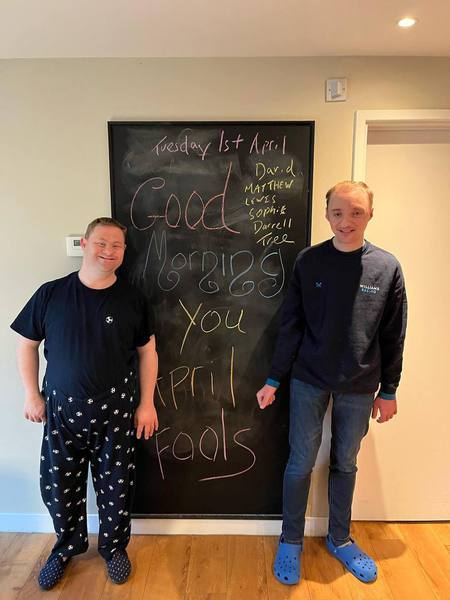 Tuesday 1st April
David
MATTHEW
LEWIS
Sophie
Darrell
Tree
Good
Morning
You
April
Fools
WILLIAMS
RACING